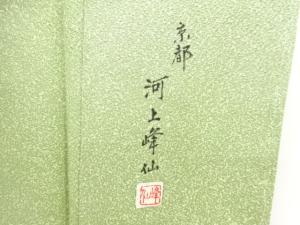 京都
河上峰仙